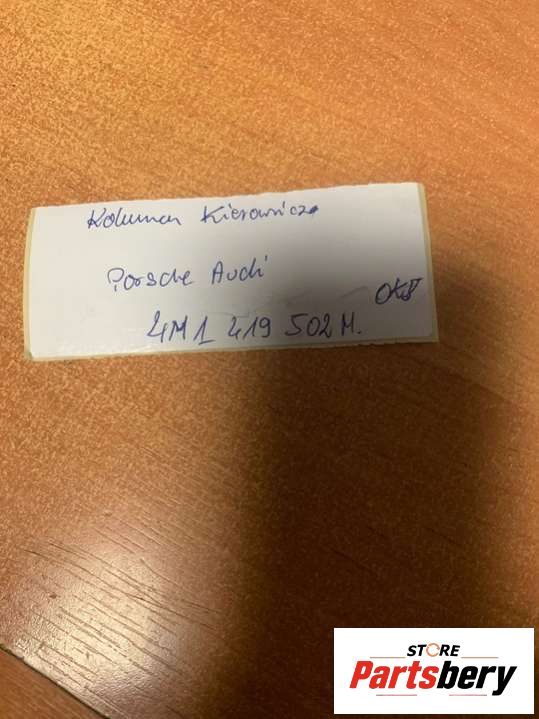 Kolumna Kierownicza
Porsche Audi
OK8
4M1 419 502M.
STORE
Partsbery